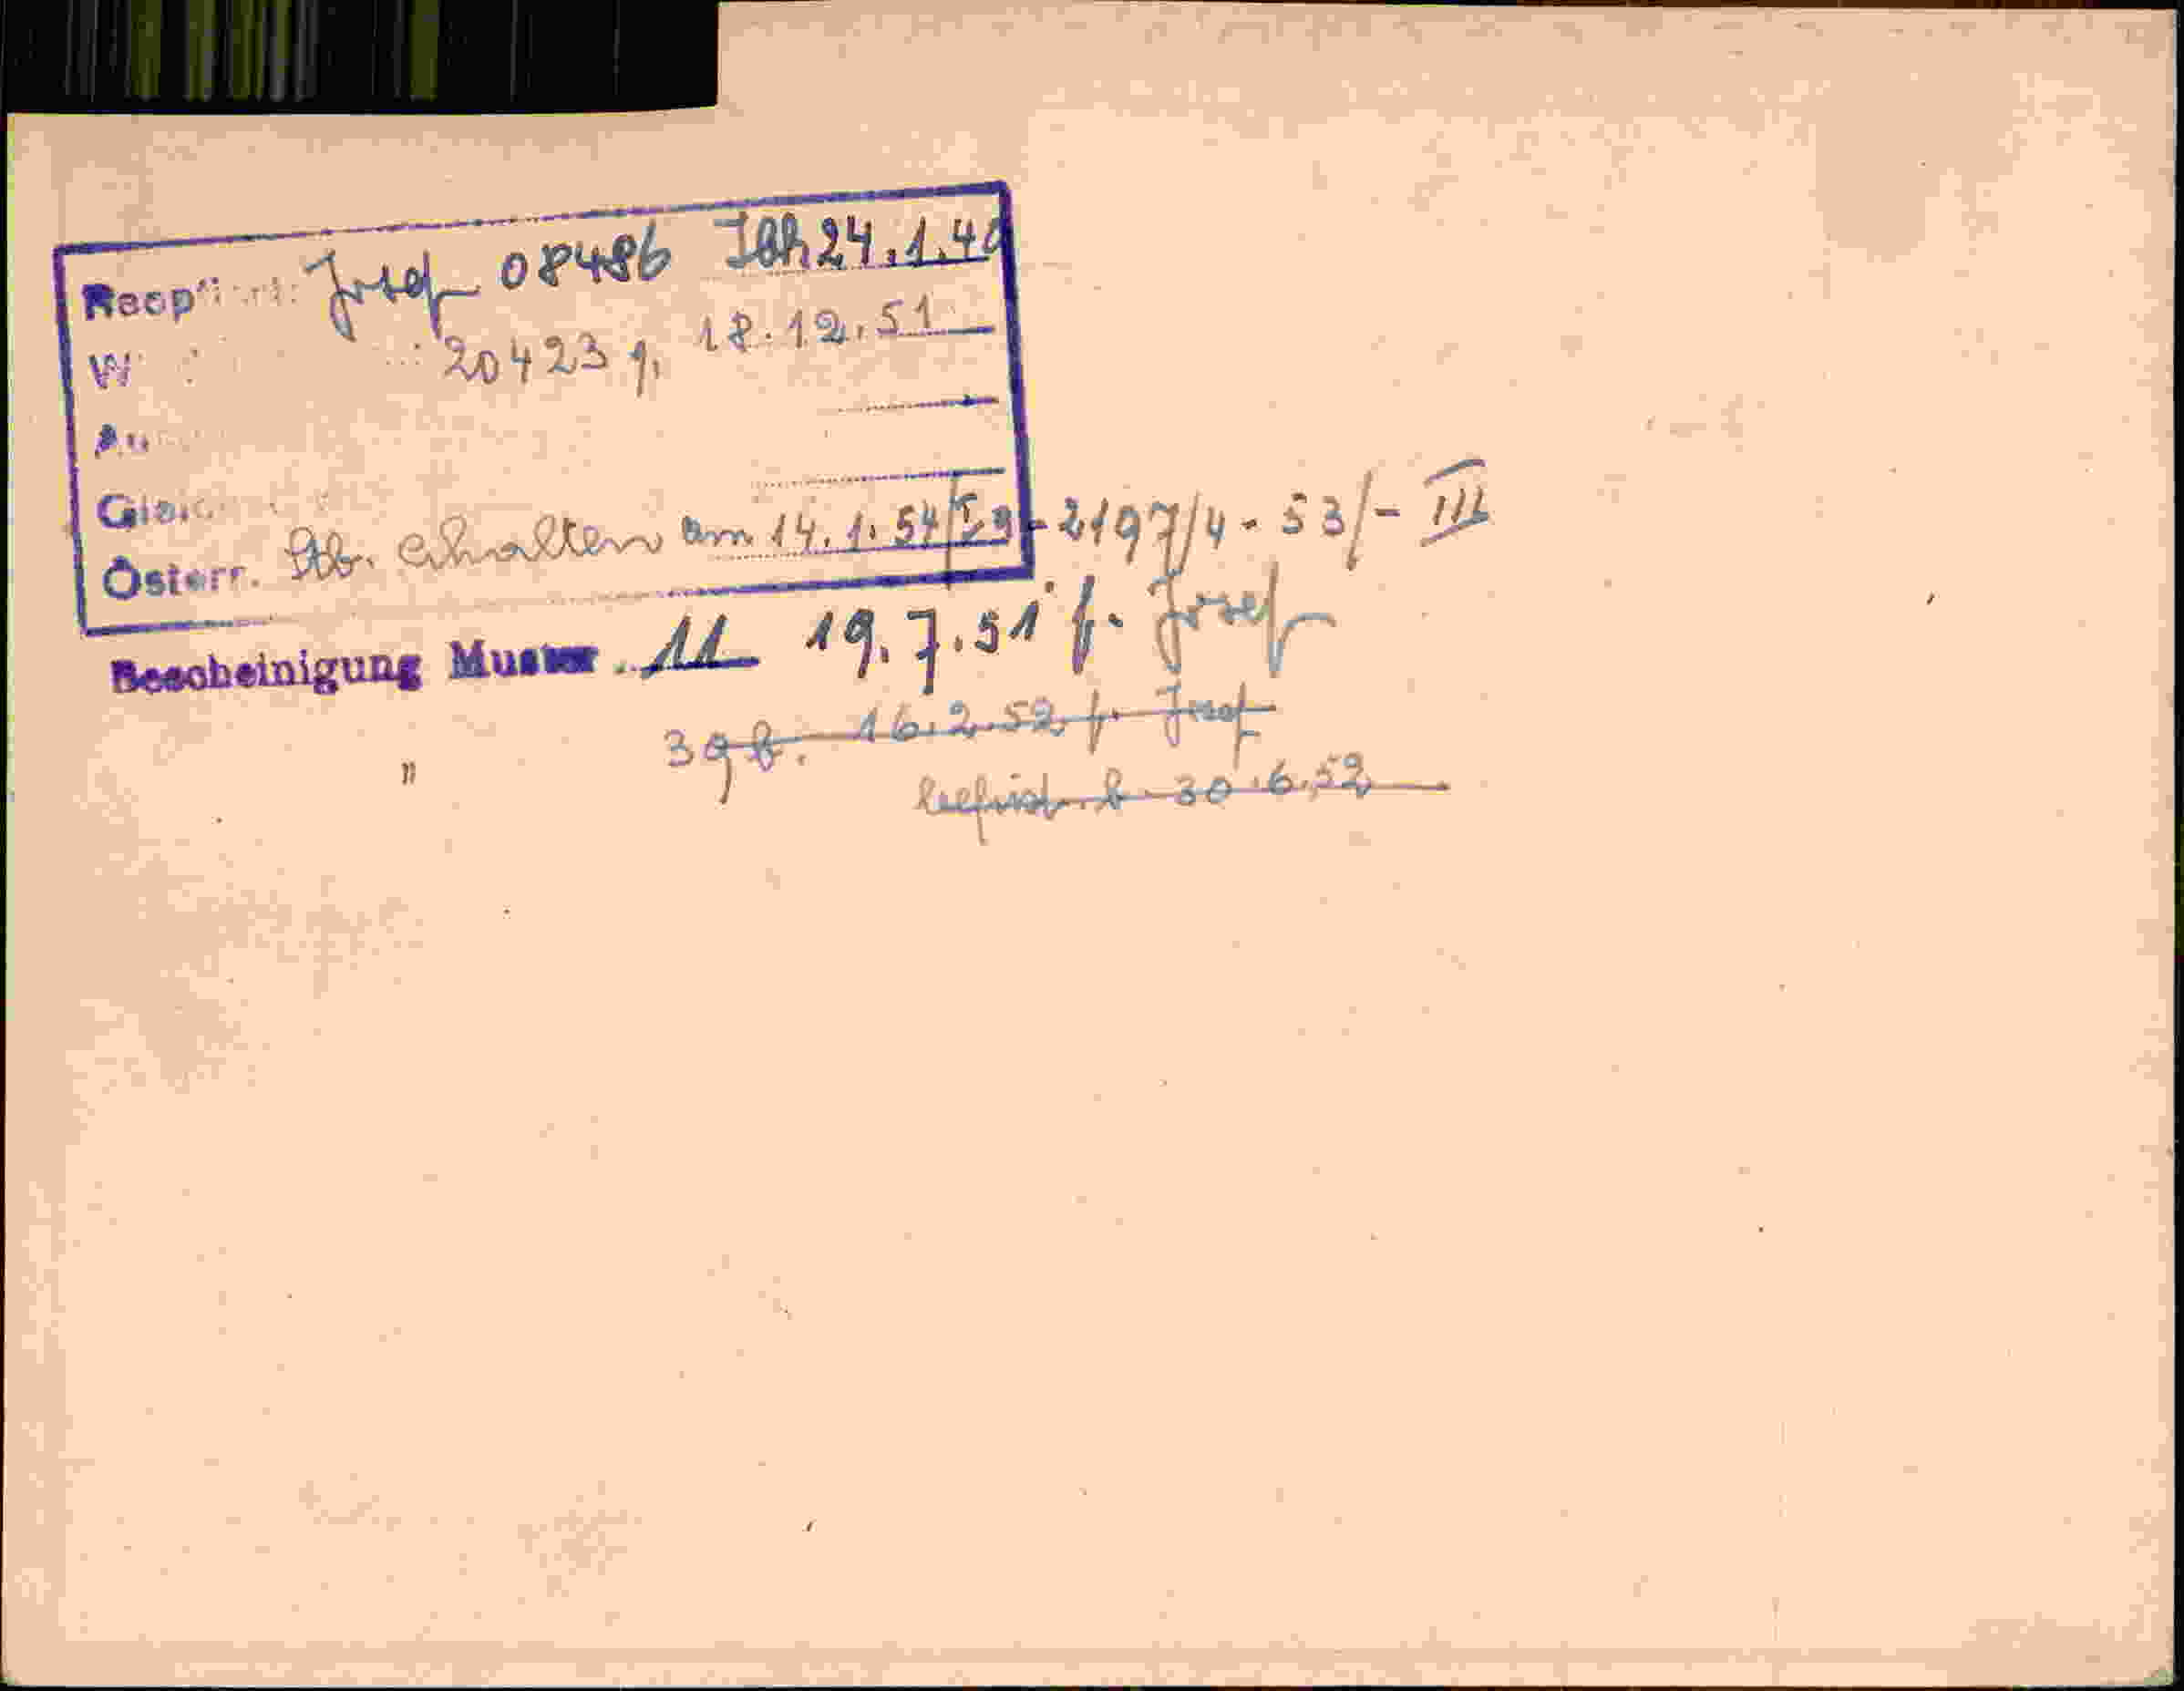 Josef 08486 Ibk 24.1.40
20423 g. 18.12.51
Österr. Stb. erhalten am 14.1.54/I a - 2197/4 - 53/- III
Bescheinigung Muster 11 19.7.51 f. Josef
" 39 b. 16.2.52 f. Josef
befrist. b. 30.6.52